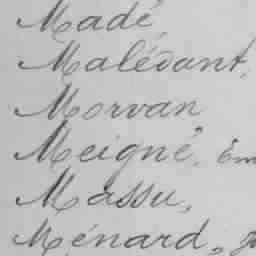 Madé
Malédant,
Morvan
Meigné, Em
Massu,
Ménard,